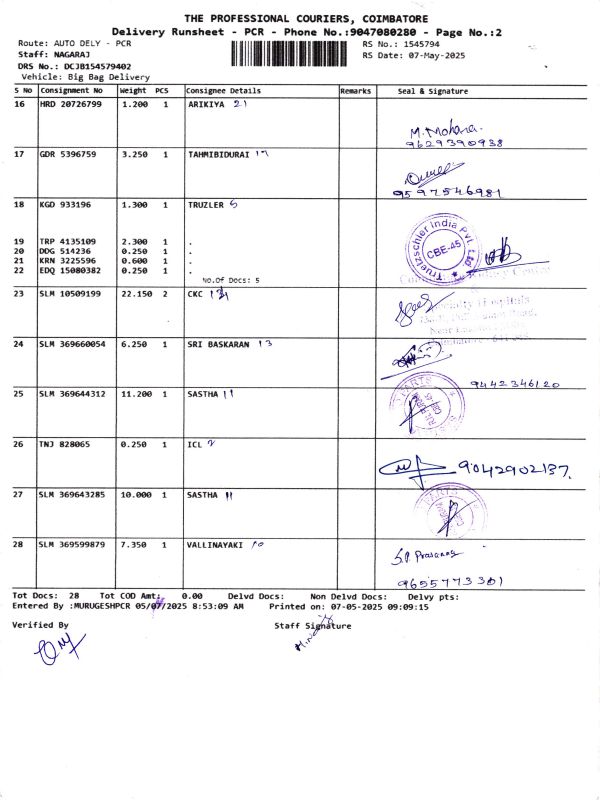 THE PROFESSIONAL COURIERS, COIMBATORE
Delivery Runsheet - PCR - Phone No.:9047080280 - Page No.:2
Route: AUTO DELY - PCR RS No.: 1545794
Staff: NAGARAJ RS Date: 07-May-2025
DRS No.: DCJB154579402
Vehicle: Big Bag Delivery
S No Consignment No Weight PCS Consignee Details Remarks Seal & Signature
16 HRD 20726799 1.200 1 ARIKIYA 21
M. Mohana.
9629390938
17 GDR 5396759 3.250 1 TAHMIBIDURAI 17
9597546981
18 KGD 933196 1.300 1 TRUZLER 5
Truetzschler India Pvt. Ltd
CBE-45
19 TRP 4135109 2.300 1 .
20 DDG 514236 0.250 1 .
21 KRN 3225596 0.600 1 .
22 EDQ 15080382 0.250 1 .
No.Of Docs: 5
23 SLM 10509199 22.150 2 CKC
24 SLM 369660054 6.250 1 SRI BASKARAN 13
9442346120
25 SLM 369644312 11.200 1 SASTHA 11
26 TNJ 828065 0.250 1 ICL 2
9042902137.
27 SLM 369643285 10.000 1 SASTHA 11
28 SLM 369599879 7.350 1 VALLINAYAKI 10
9655773301
Tot Docs: 28 Tot COD Amt: 0.00 Delvd Docs: Non Delvd Docs: Delvy pts:
Entered By :MURUGESHPCR 05/07/2025 8:53:09 AM Printed on: 07-05-2025 09:09:15
Verified By Staff Signature